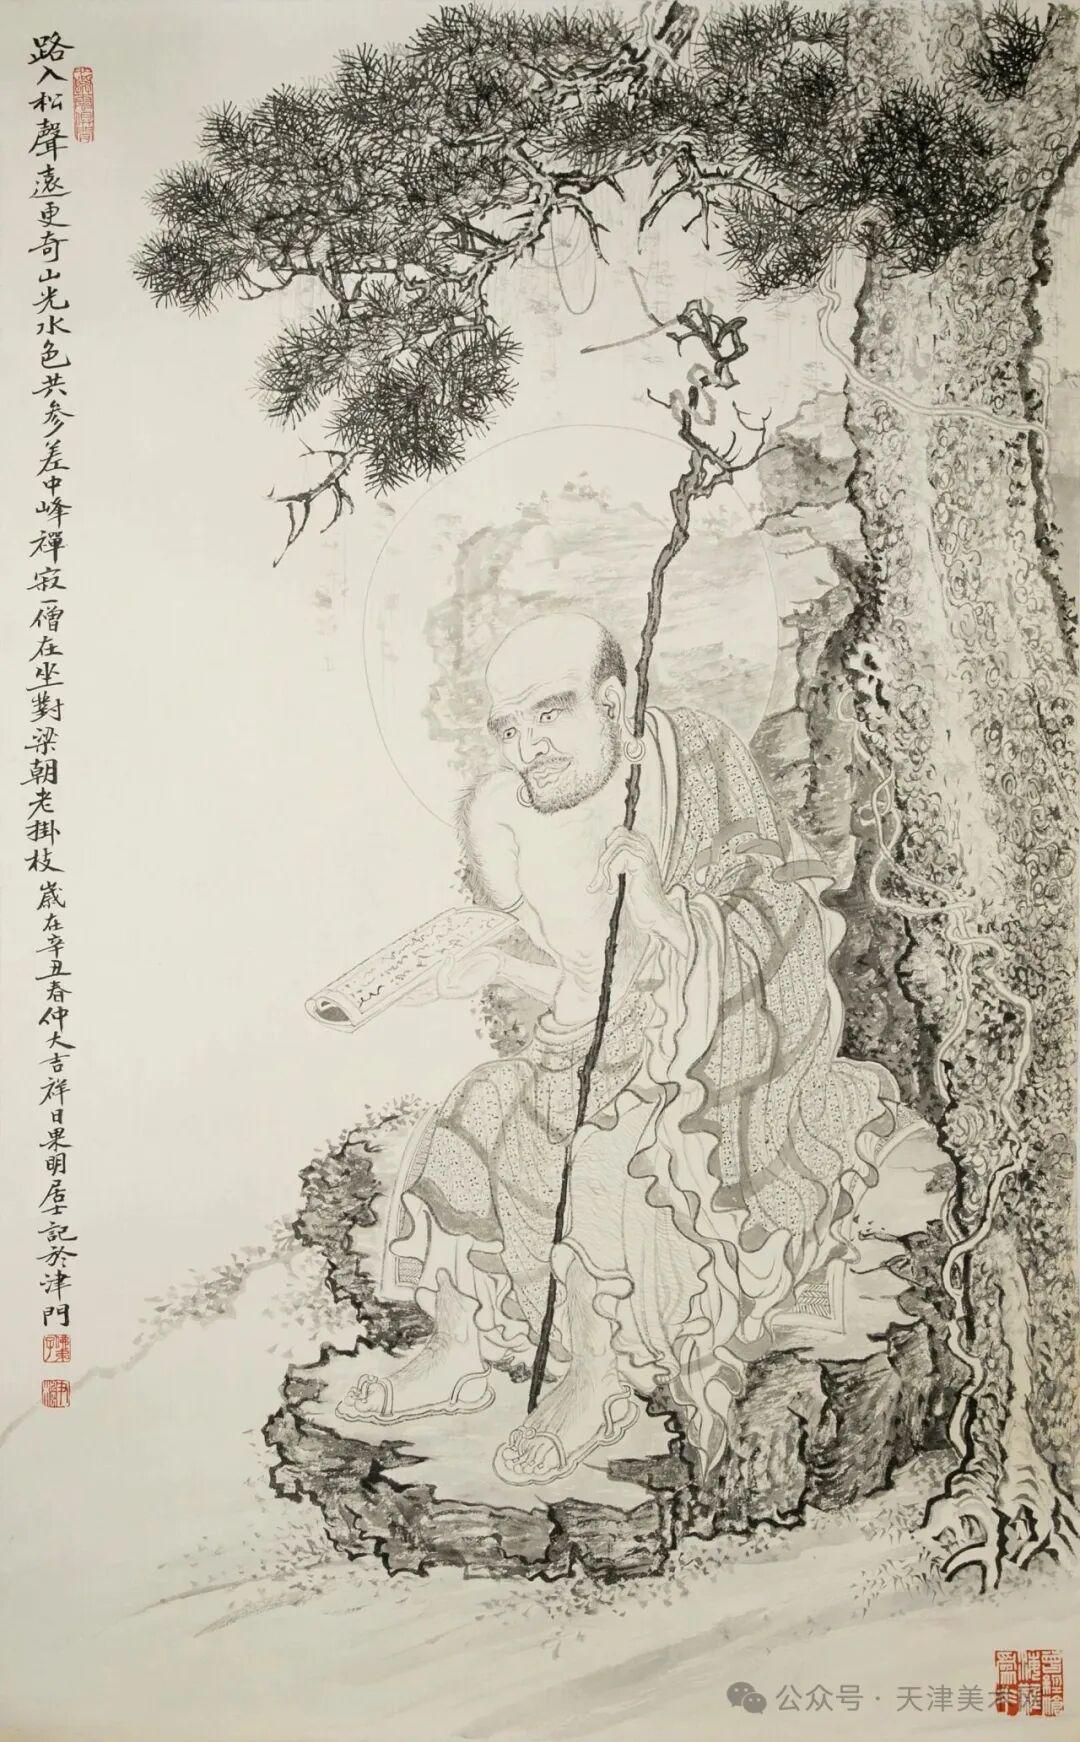 路入松聲遠更奇山光水色共參差中峰禪寂一僧在坐對梁朝老掛枝 歲在辛丑春仲大吉祥日果明居士記於津門
公众号 · 天津美术网